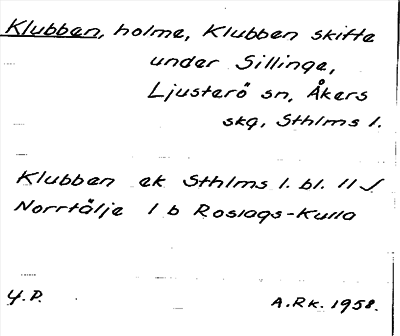 Klubben, holme, Klubben skifte
under Sillinge,
Ljusterö sn, Åkers
skg, Sthlms l.
Klubben ek Sthlms l. bl. 11 √
Norrtälje 1 b Roslags-Kulla
Y.P. A.Rk. 1958.